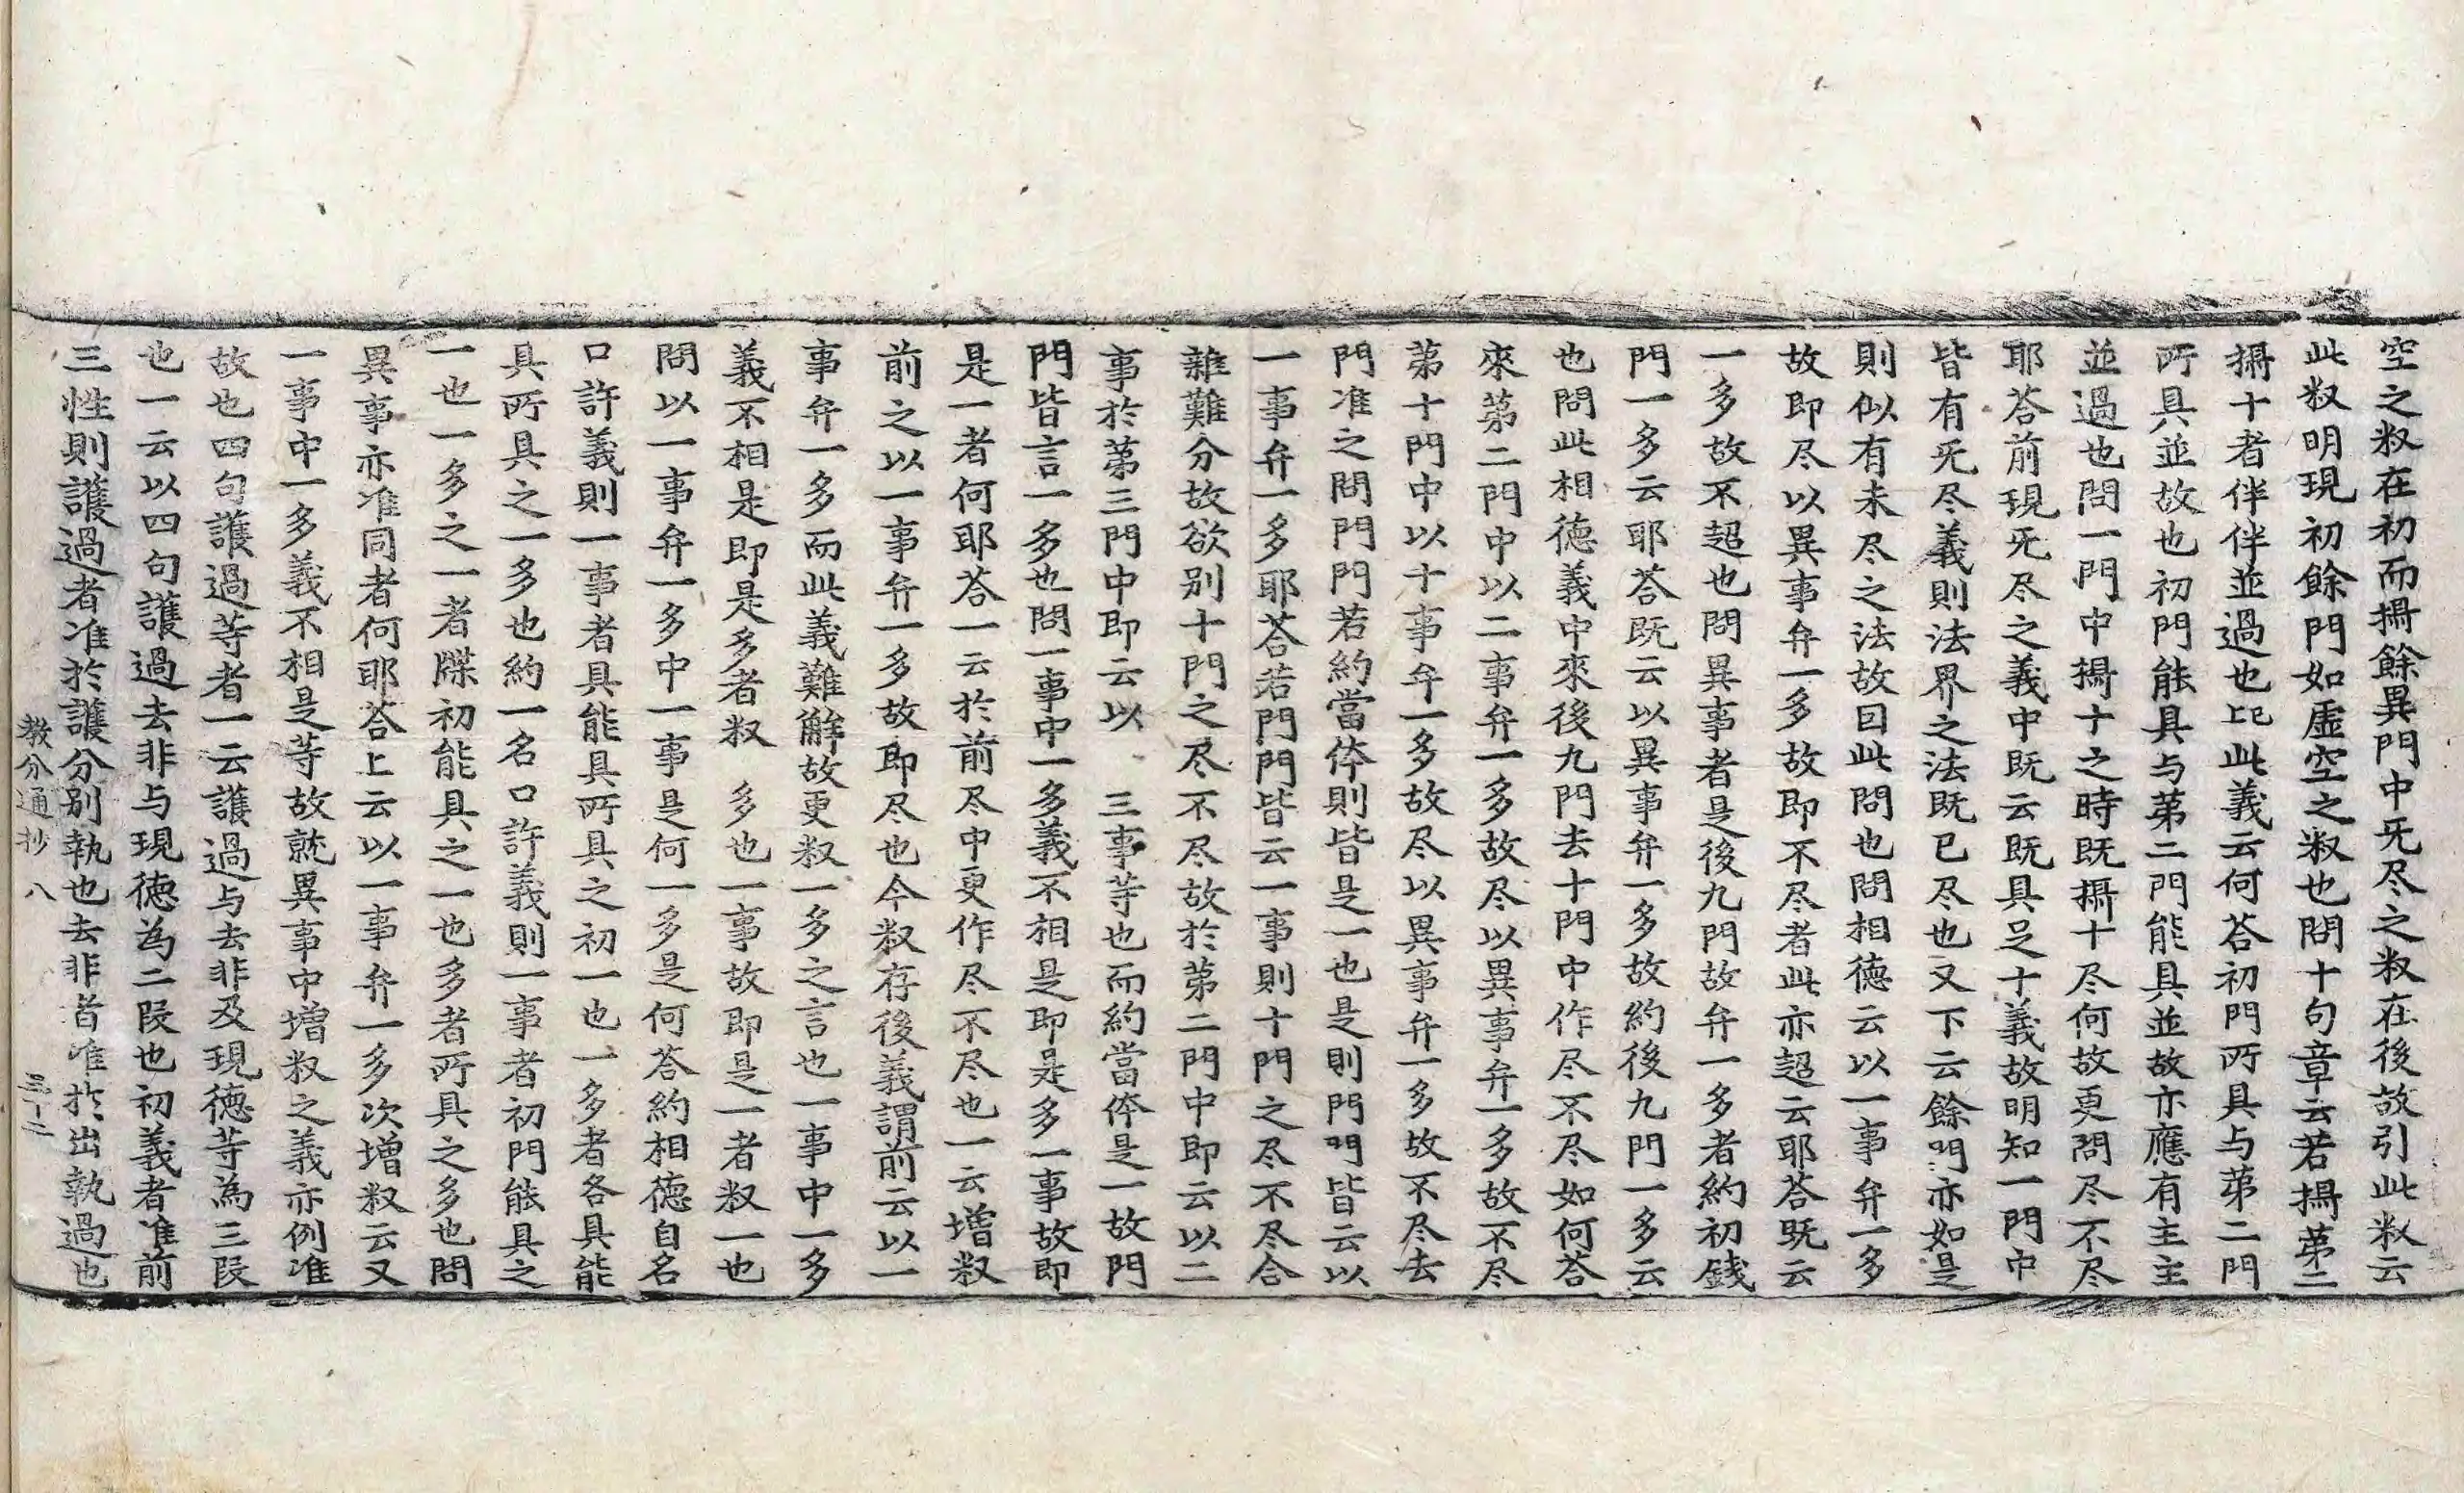 空之叙在初而攝餘異門中旡尽之叙在後故引此叙云
此叙明現初餘門如虛空之叙也問十句章云若攝苐二
攝十者伴伴並過也此義云何荅初門所具与苐二門
所具並故也初門能具与苐二門能具並故亦應有主主
並過也問一門中攝十之時既攝十尽何故更問尽不尽
耶荅前現旡尽之義中既云既具足十義故明知一門中
皆有旡尽義則法界之法既已尽也又下云餘門亦如是
則似有未尽之法故因此問也問相德云以一事弁一多
故即尽以異事弁一多故即不尽者此亦超云耶荅既云
一多故不超也問異事者是後九門故弁一多者約初錢
門一多云耶荅既云以異事弁一多故約後九門一多云
也問此相德義中來後九門去十門中作尽不尽如何荅
來苐二門中以二事弁一多故尽以異事弁一多故不尽
苐十門中以十事弁一多故尽以異事弁一多故不尽去
門准之問門門若約當体則皆是一也是則門門皆云以
一事弁一多耶荅若門門皆云一事則十門之尽不尽合
雜難分故欲别十門之尽不尽故於苐二門中即云以二
事於苐三門中即云以三事等也而約當体是一故門
門皆言一多也問一事中一多義不相是即是多一事故即
是一者何耶荅一云於前尽中更作尽不尽也一云增叙
前之以一事弁一多故即尽也今叙存後義謂前云以一
事弁一多而此義難觧故更叙一多之言也一事中一多
義不相是即是多者叙 多也一事故即是一者叙一也
問以一事弁一多中一事是何一多是何荅約相德自名
口許義則一事者具能具所具之初一也一多者各具能
具所具之一多也約一名口許義則一事者初門能具之
一也一多之一者牒初能具之一也多者所具之多也問
異事亦准同者何耶荅上云以一事弁一多次增叙云又
一事中一多義不相是等故就異事中增叙之義亦例准
故也四句護過等者一云護過与去非及現德等為三段
也一云以四句護過去非与現德為二段也初義者准前
三性則護過者准於護分别執也去非者准於出執過也
教分通抄 八